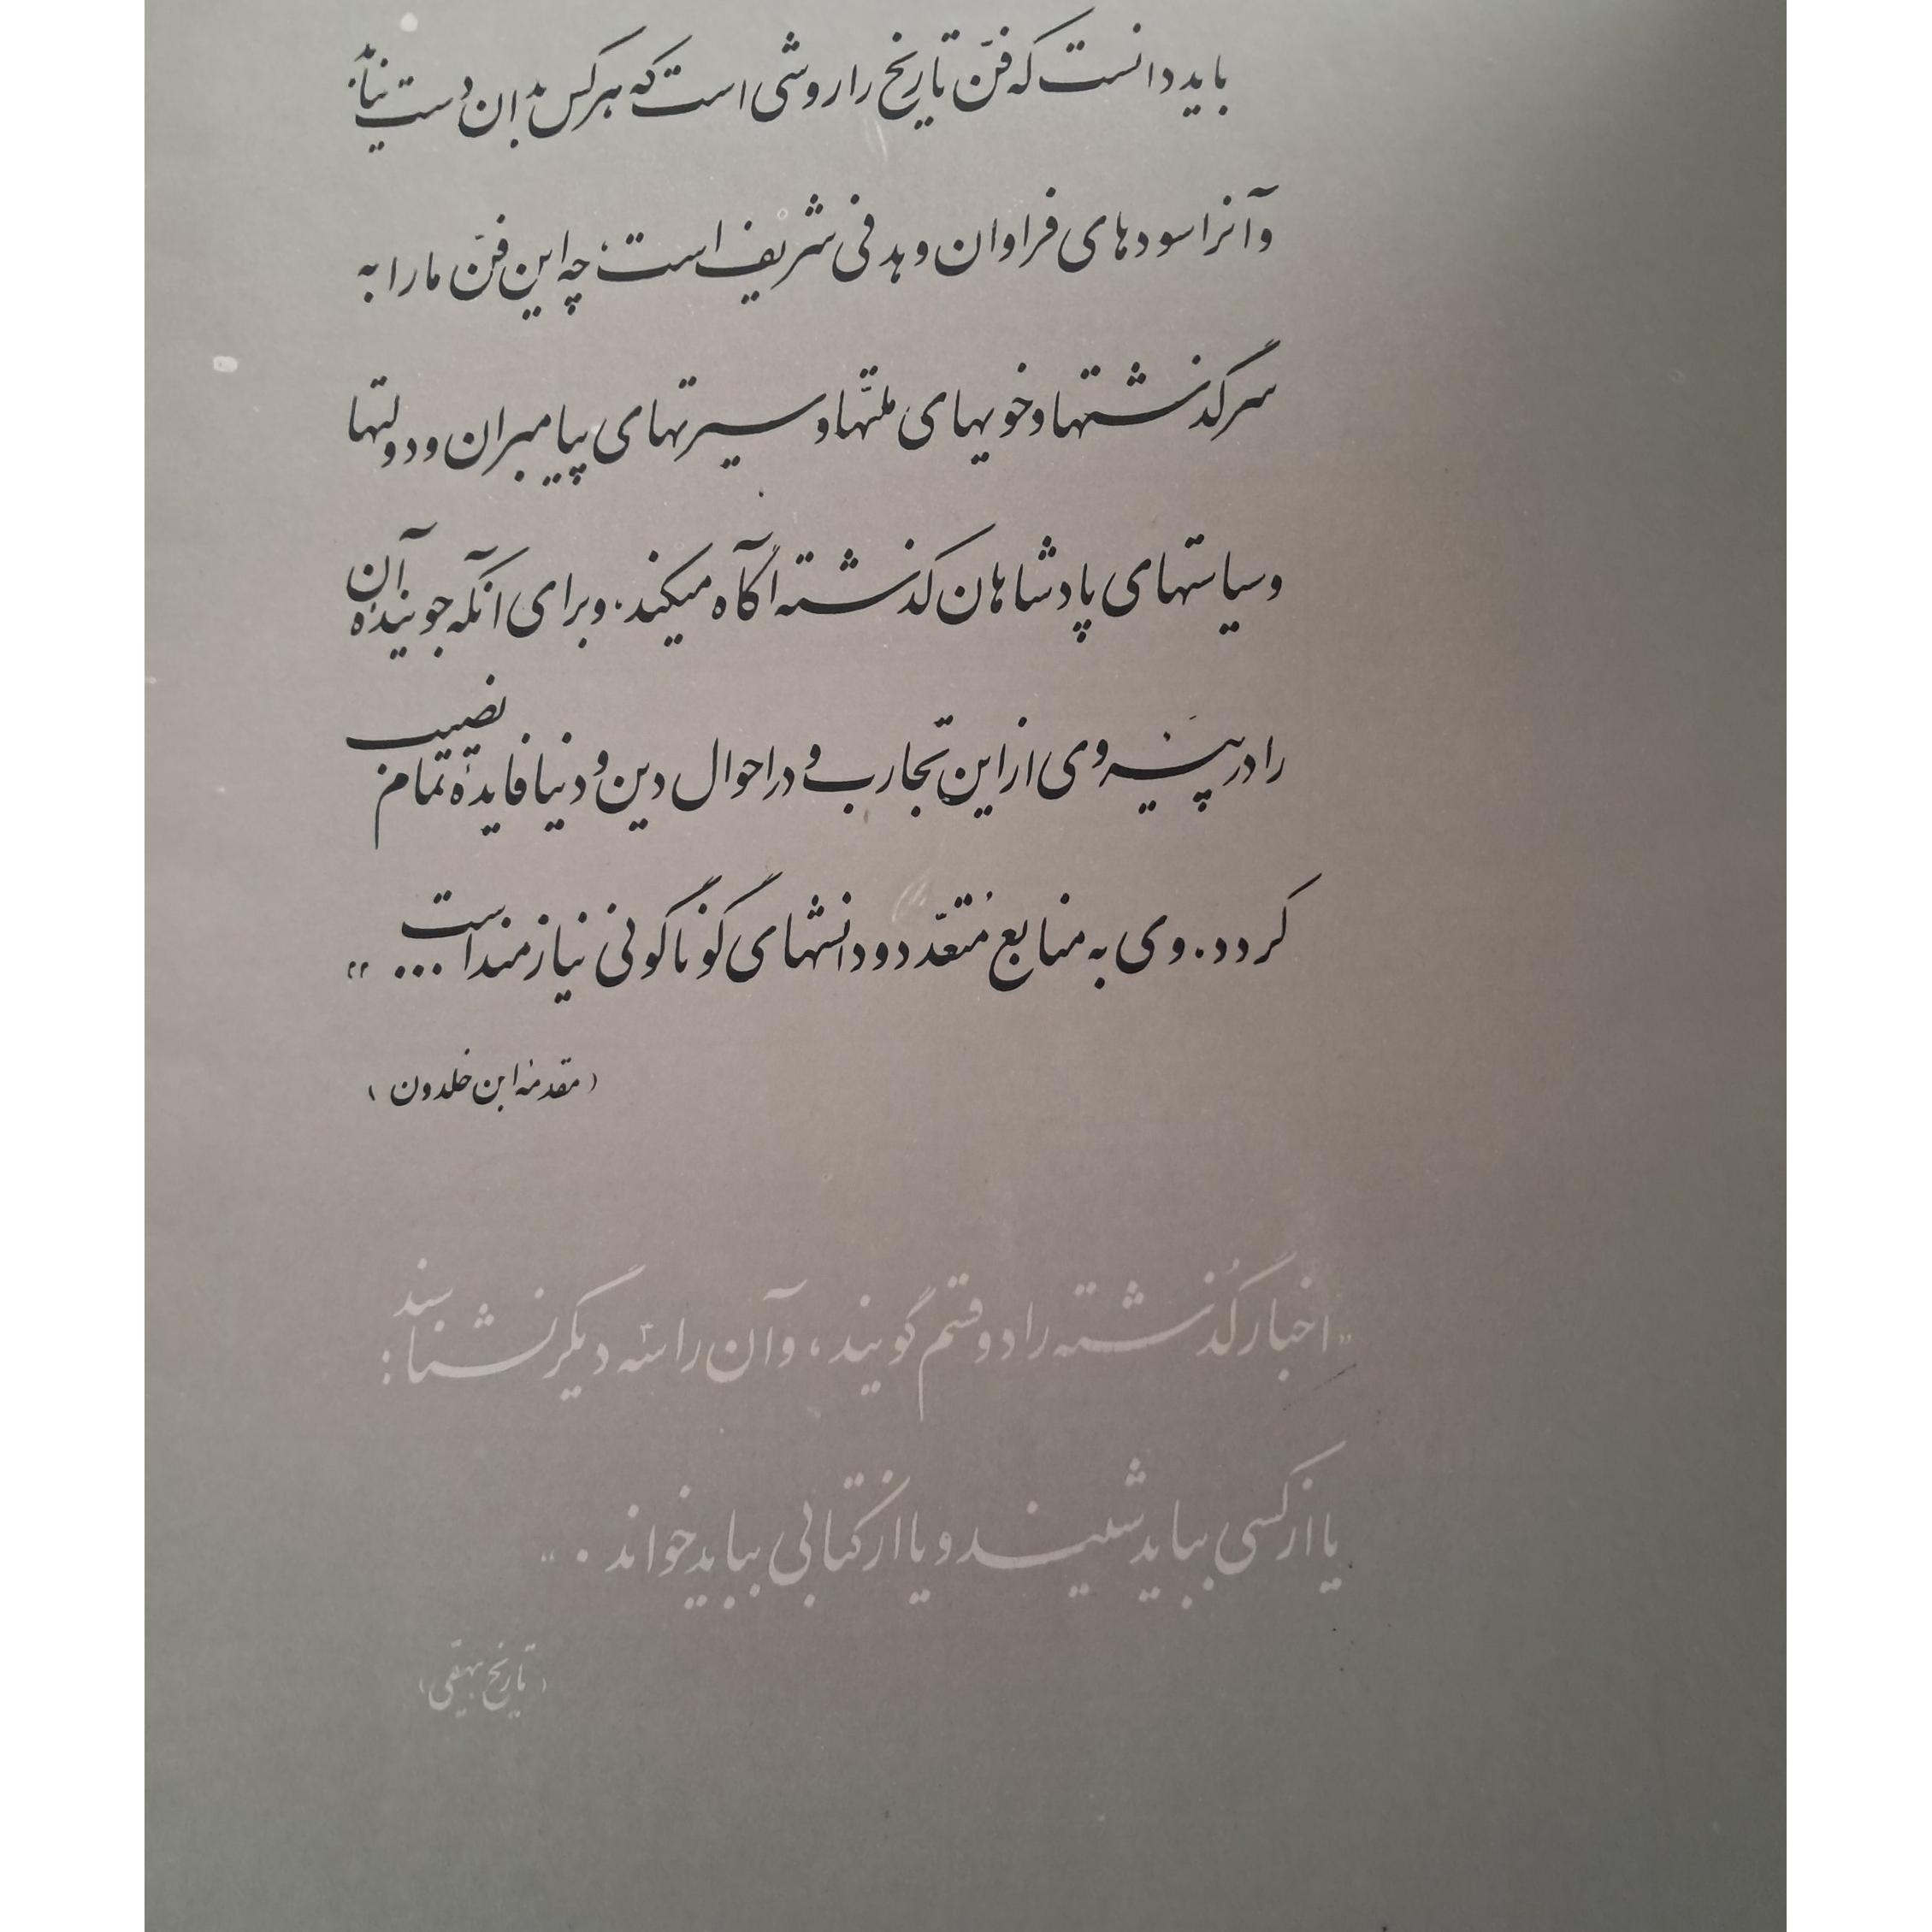 باید دانست که فنّ تاریخ را روشی است که هر کس بدان دست نیابد
و آنرا سودهای فراوان و هدفی شریف است، چه این فنّ ما را به
سرگذشتها و خویهای ملتّها و سیرتهای پیامبران و دولتها
و سیاستهای پادشاهان گذشته آگاه میکند. و برای آنکه جوینده آن
را در پیروی از این تجارب و در احوال دین و دنیا فایدهٔ تمام نصیب
گردد. وی به منابع مُتعدّد و دانشهای گوناگونی نیازمند است ... »
(مقدمه ابن خلدون)
« اخبار گُذشته را دو قسم گویند، و آن را سه دیگر نشناسند :
یا از کسی بباید شنید و یا از کتابی بباید خواند . »
(تاریخ بیهقی)